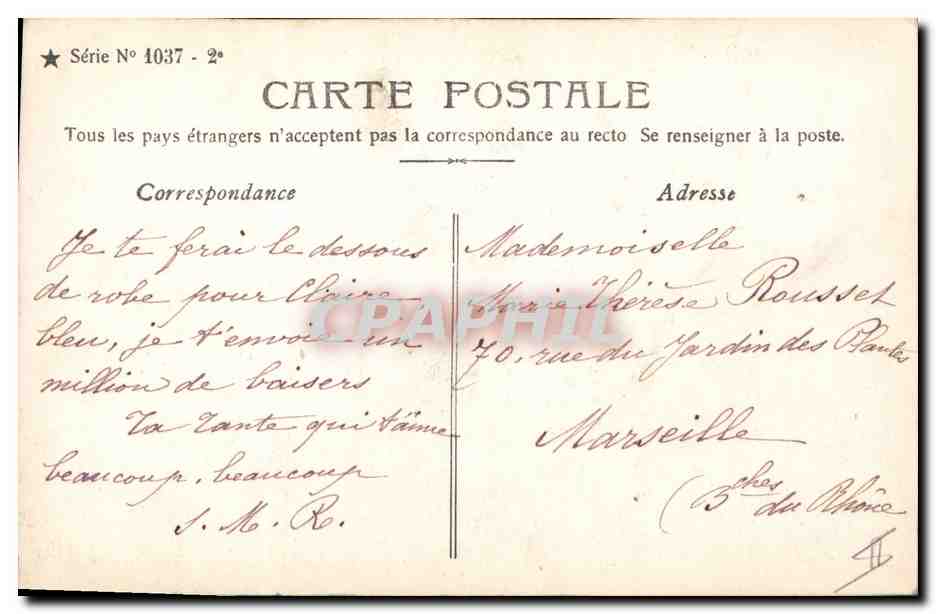 ★ Série Nº 1037 - 2ᵉ
CARTE POSTALE
Tous les pays étrangers n'acceptent pas la correspondance au recto Se renseigner à la poste.
Correspondance
Je te ferai le dessous
de robe pour Claire
bleu, je t'envoie un
million de baisers
Ta Tante qui t'aime
beaucoup, beaucoup
S. M. R.
Adresse
Mademoiselle
Marie Thérèse Rousset
70, rue du Jardin des Plantes
Marseille
(Bches du Rhône
CPAPHIL